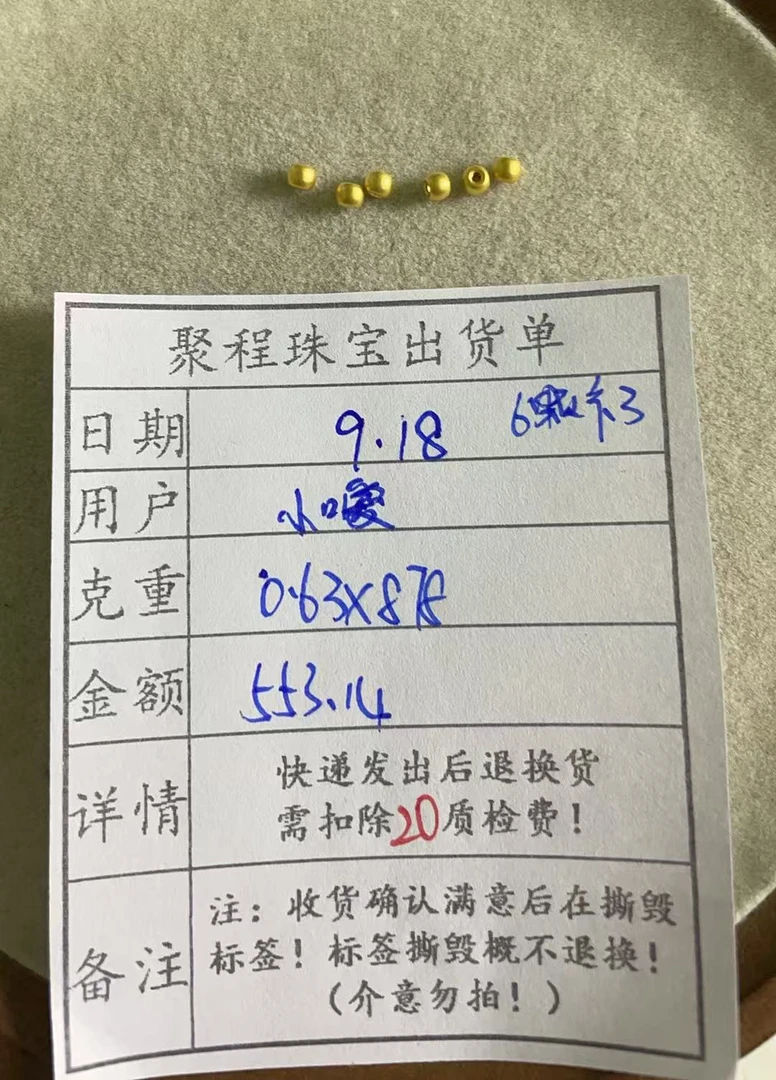 聚程珠宝出货单
日期 9.18 6颗卡3
用户 小
克重 0.63×878
金额 553.14
详情 快递发出后退换货
需扣除20质检费!
备注 注:收货确认满意后在撕毁
标签!标签撕毁概不退换!
(介意勿拍!)